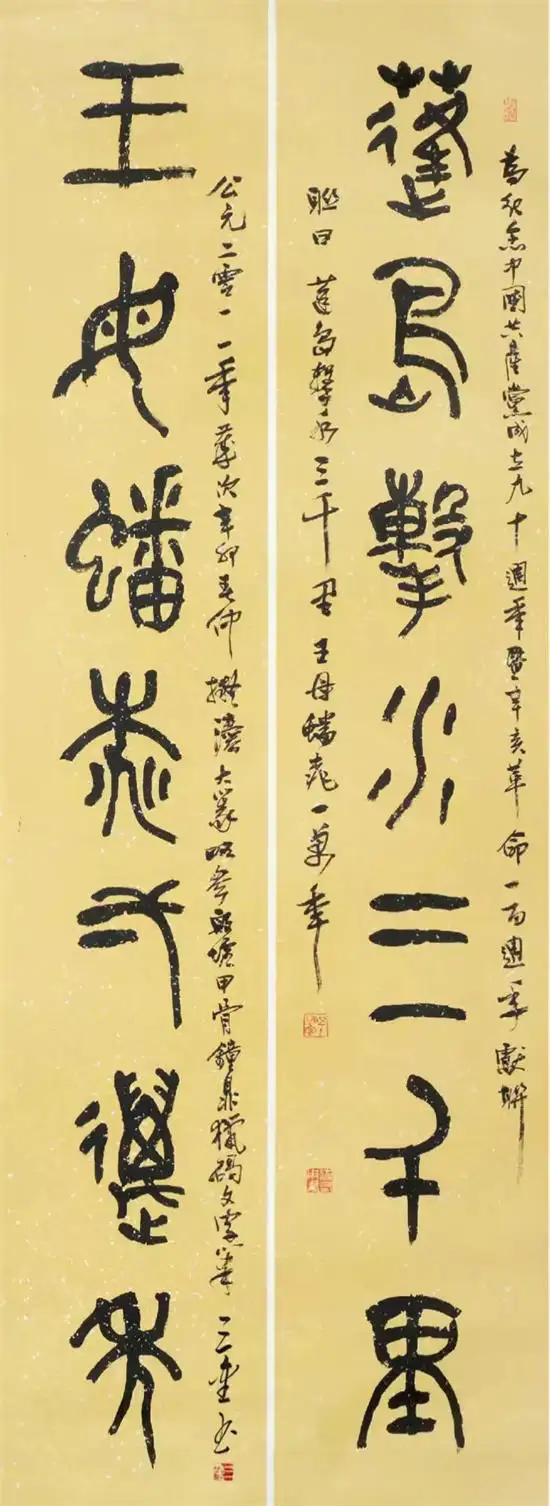 為紀念中國共產黨成立九十週年暨辛亥革命一百週年獻聯
蓬島擊水三千里
聯曰 蓬島擊水三千里 王母蟠桃一萬年
公元二零一一年歲次辛卯春仲 大篆略參殷墟甲骨鐘鼎獵碣文字筆 三
王母蟠桃弌萬年